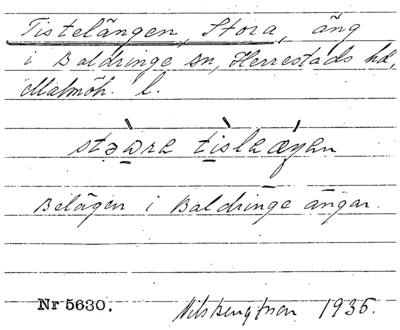 Tistelängen, Stora, äng
i Baldringe sn, Herrestads hd,
Malmöh. l.
Belägen i Baldringe ängar.
Nr 5630. Nils Bengtsson 1935.